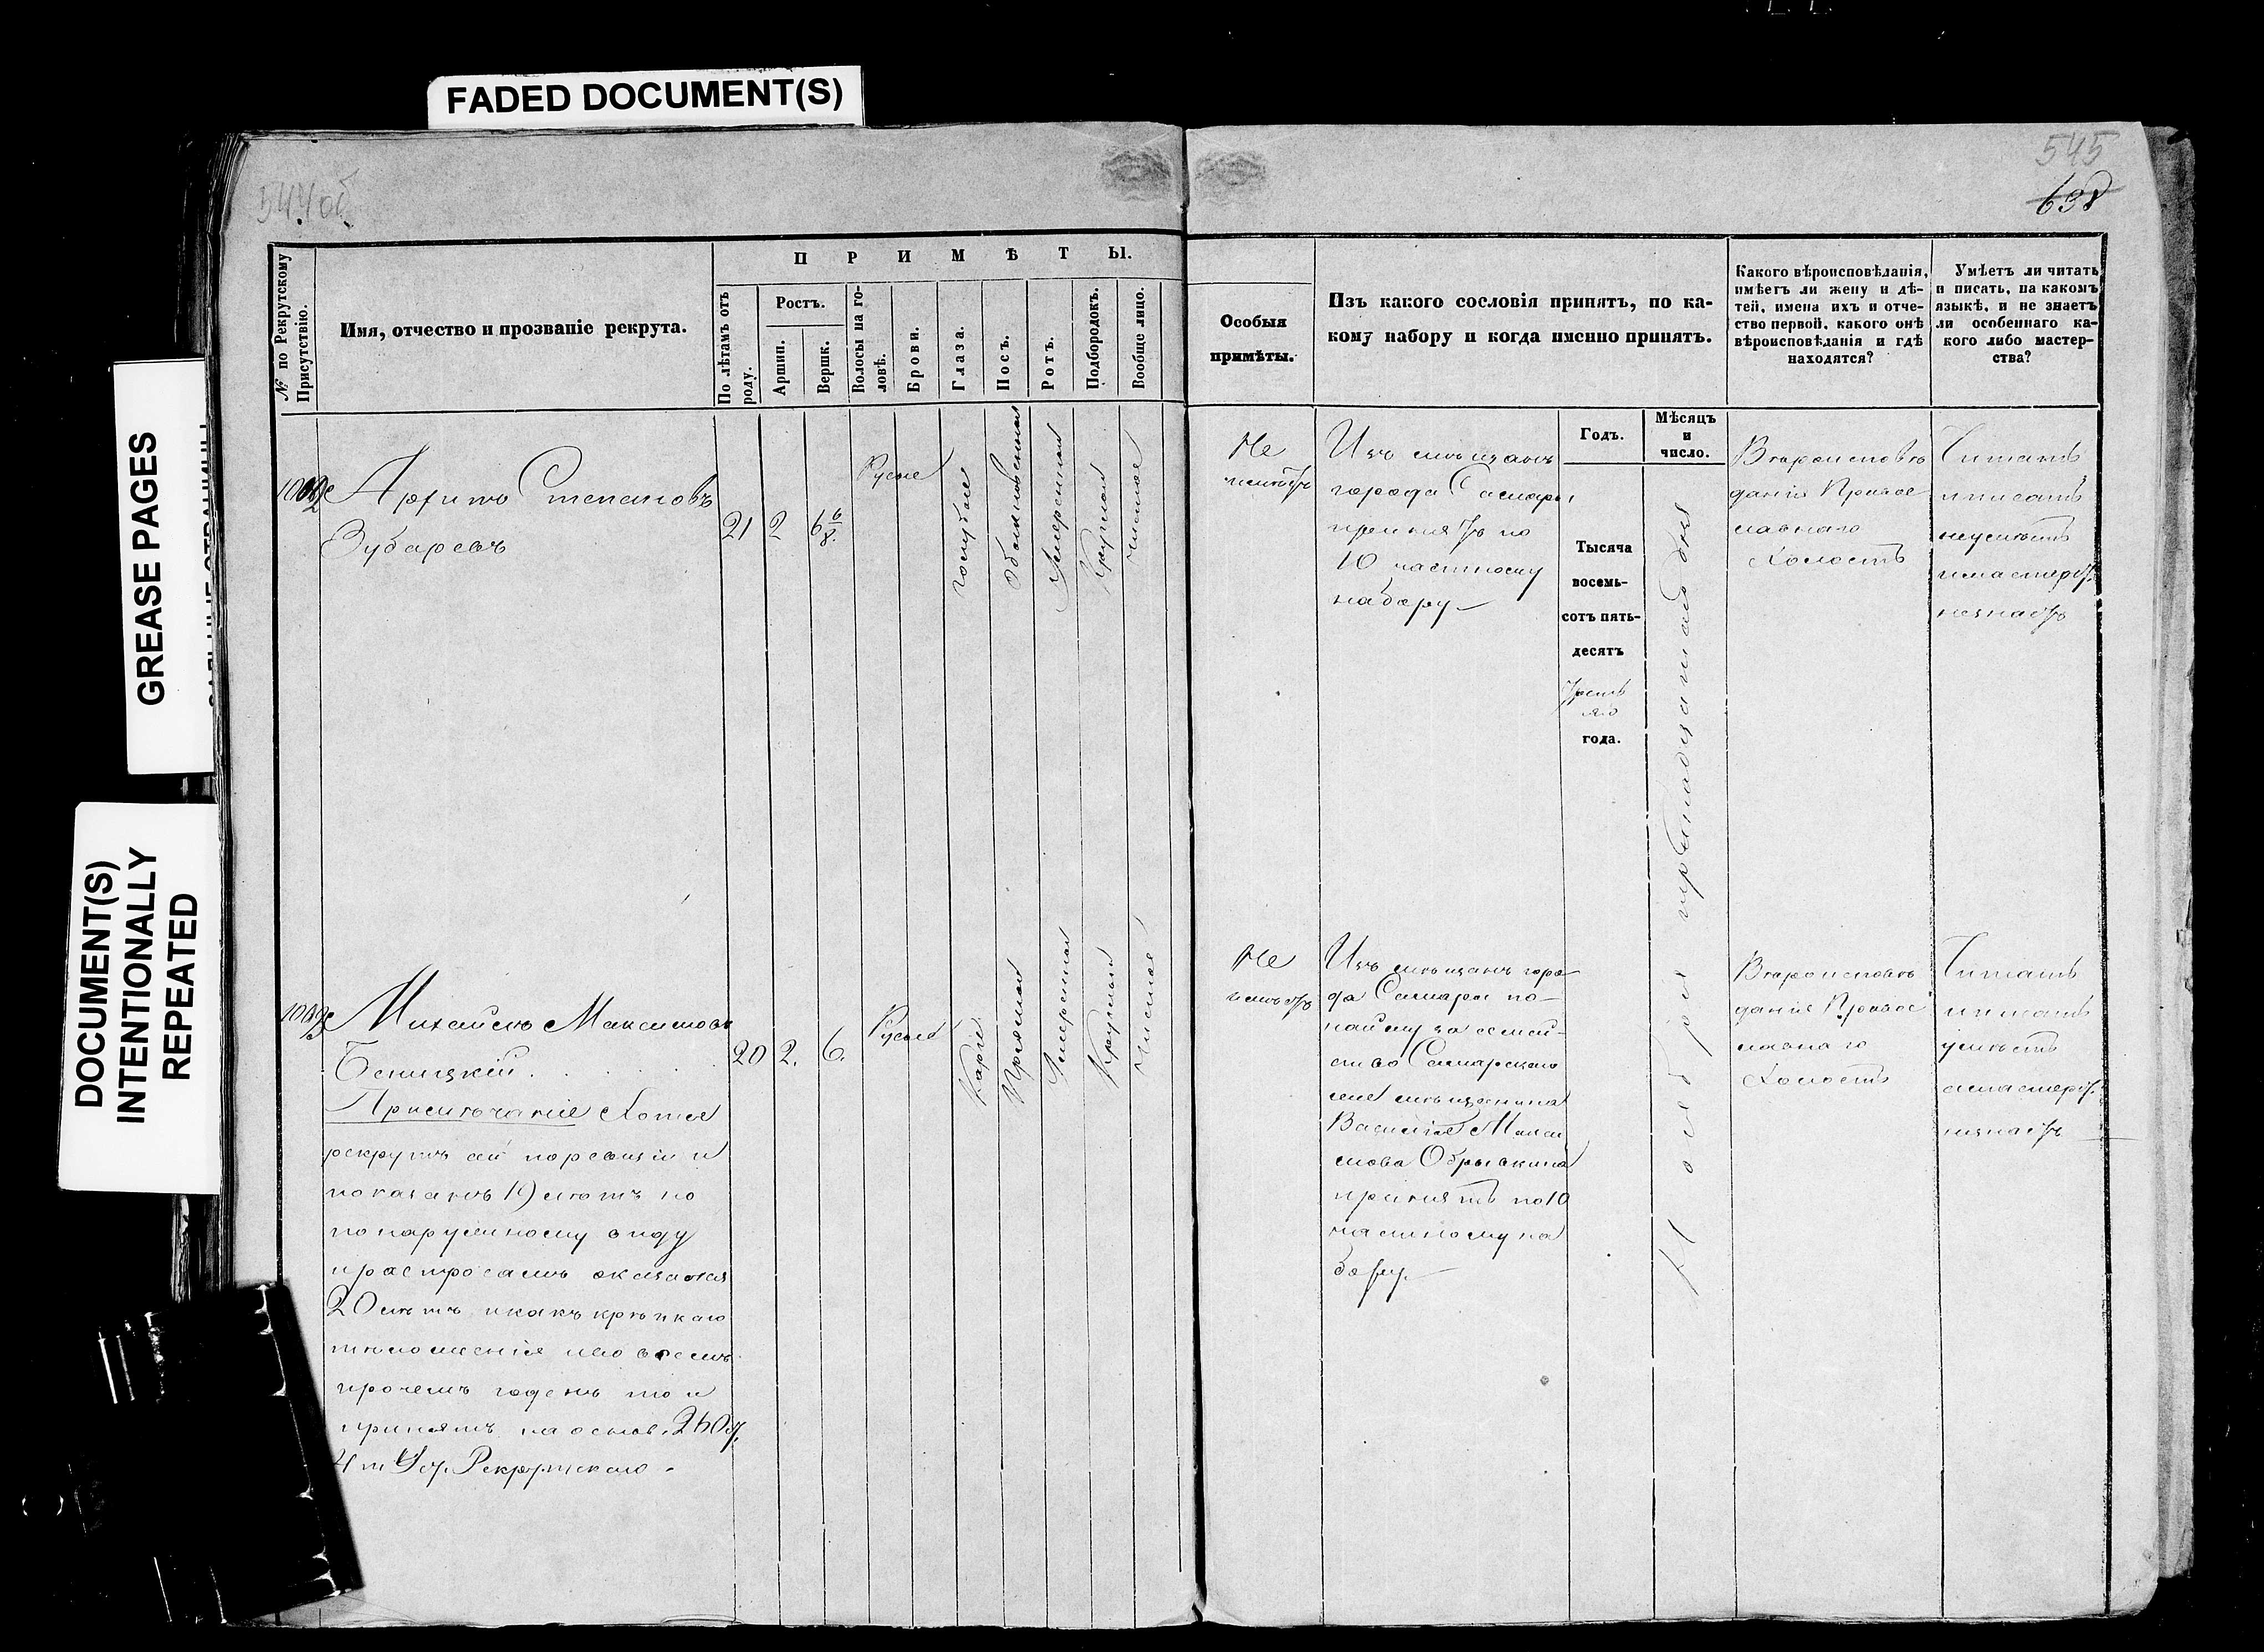 FADED DOCUMENT(S)
GREASE PAGES
DOCUMENT(S)
INTENTIONALLY
REPEATED
544об
545
638
№ по Рекрутскому
Присутствію.
Имя, отчество и прозваніе рекрута.
ПРИМѢТЫ.
По лѣтамъ отъ
роду.
Ростъ.
Аршин.
Вершк.
Волосы на го-
ловѣ.
Брови.
Глаза.
Носъ.
Ротъ.
Подбородокъ.
Вообще лицо.
Особыя
примѣты.
Изъ какого сословія принятъ, по ка-
кому набору и когда именно принятъ.
Годъ.
Мѣсяцъ
и
число.
Какого вѣроисповѣданія,
имѣетъ ли жену и дѣ-
тей, имена ихъ и отче-
ство первой, какого онѣ
вѣроисповѣданія и гдѣ
находятся?
Умѣетъ ли читать
и писать, на какомъ
языкѣ, и не знаетъ
ли особеннаго ка-
кого либо мастер-
ства?
Степановъ
Зубаревъ
21
2
6 6/8.
Русые
голубые
обыкновенный
умеренный
Круглый
чистое
Не
имѣетъ
Изъ мѣщанъ
города Самары
принятъ по
10 частному
набору
Тысяча
восемь-
сотъ пять-
десятъ
третья
го
года.
Ноября тринадцатаго дня
Вѣроисповѣ
данія Правос
лавнаго
Холостъ
Читать
и писать
неумѣетъ
и мастерст.
незнаетъ
Михайло Максимовъ
20
2.
6.
Русые
Каріе
Прямой
Умеренной
Круглый
Чистое
Примѣчаніе Хотя
рекрутъ сей по ревизіи и
показанъ 19 лѣтъ но
по наружному виду
и распросамъ оказался
20 лѣтъ и какъ крѣпкаго
тѣлосложенія и во всемъ
прочемъ годенъ то и
принятъ на основ. 260 ст.
4 т. Уст. Рекрутскаго
Не
имѣетъ
Изъ мѣщанъ горо
да Самары по
найму за семей
ство Самарскаго
мѣщанина
Василія Макси
мова
принятъ по 10
частному на
бору.
Вѣроисповѣ
данія Правос
лавнаго
Холостъ
Читать
и писать
умѣетъ
а мастерст.
незнаетъ